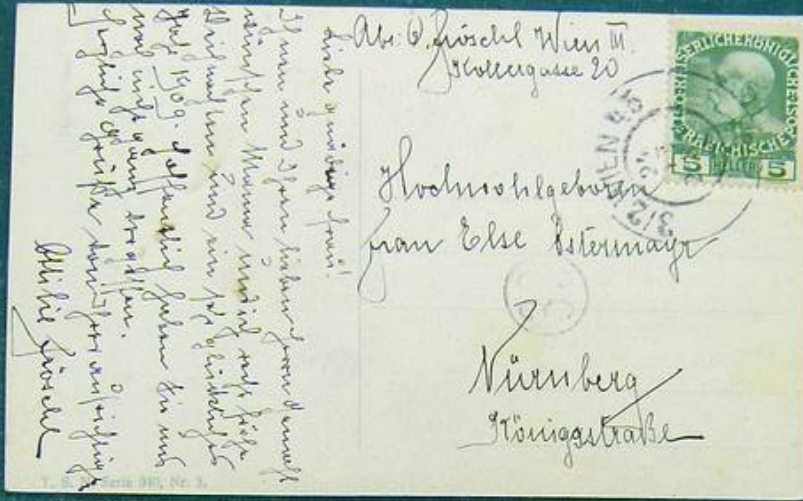 Abs: O. Fröschl Wien III.
Kollergasse 20
KAISERLICHE KÖNIGLICHE ÖSTERREICHISCHE POST
5 HELLER 5
3/2 WIEN
Hochwohlgeboren
Frau Else Ostermayr
Nürnberg
Königsstraße
Liebe gnädige Frau!
Ihnen und Ihrem lieben Herrn Gemahl
wünschen Mama und ich recht frohe
Weihnachten und ein sehr glückliches
Jahr 1909. Hoffentlich haben Sie uns
noch nicht ganz vergessen.
Herzliche Grüße von Ihrer aufrichtigen
Ottilie Fröschl
T. S. N. Serie 940, Nr. 3.